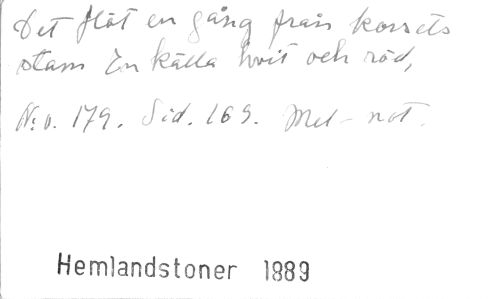 Det flöt en gång från korsets
stam En källa hvit och röd,
N:o. 179. Sid. 169. Mel-not.
Hemlandstoner 1889